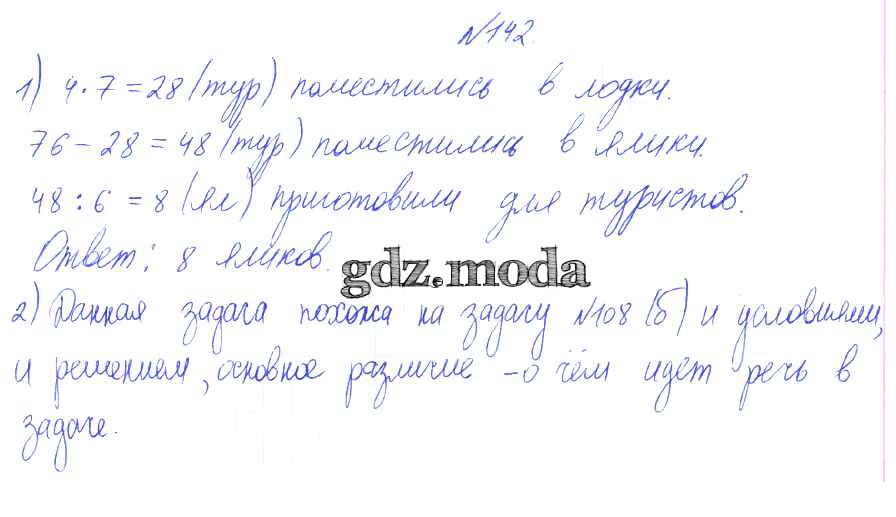 №142.
1) 4·7=28 (тур) поместились в лодки.
76-28=48 (тур) поместились в ялики.
48:6=8 (ял) приготовили для туристов.
Ответ: 8 яликов.
gdz.moda
2) Данная задача похожа на задачу №108 (б) и условиями,
и решением, основное различие - о чём идёт речь в
задаче.